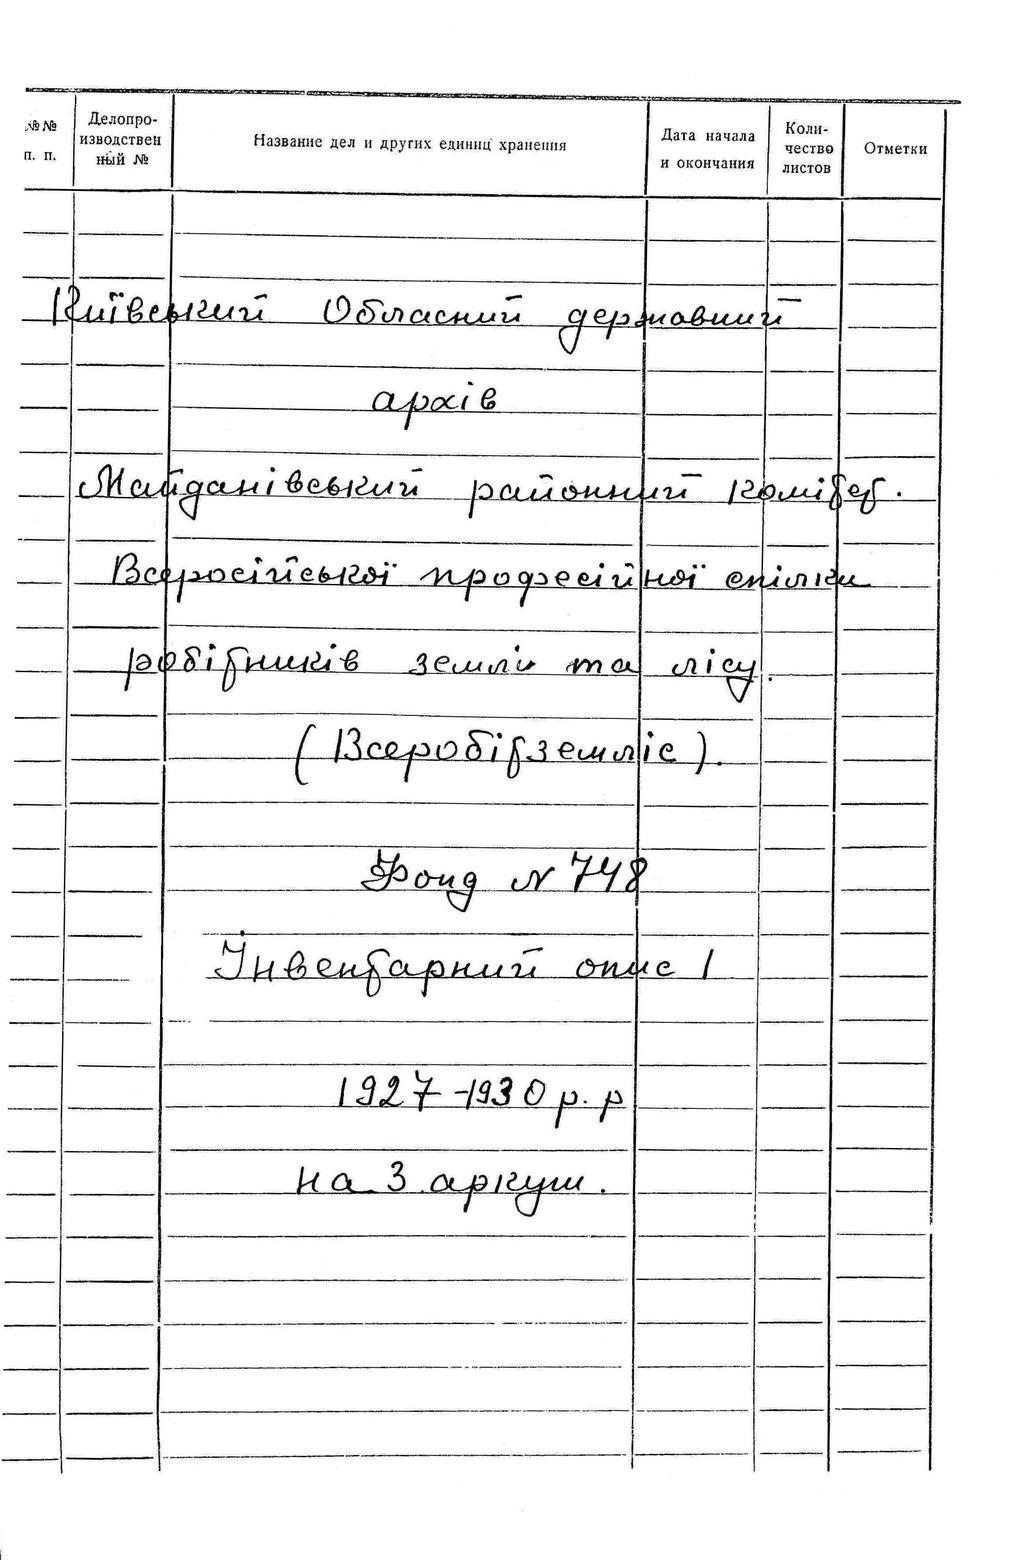 №№ п. п.
Делопро-изводствен ный №
Название дел и других единиц хранения
Дата начала и окончания
Коли-чество листов
Отметки
Київський Обласний державний
архів
Майданівський районний комітет.
Всеросійської професійної спілки
робітників землі та лісу.
(Всеробітземліс).
Фонд N 748
Інвентарний опис 1
1927-1930 р. р
на 3 аркуш.